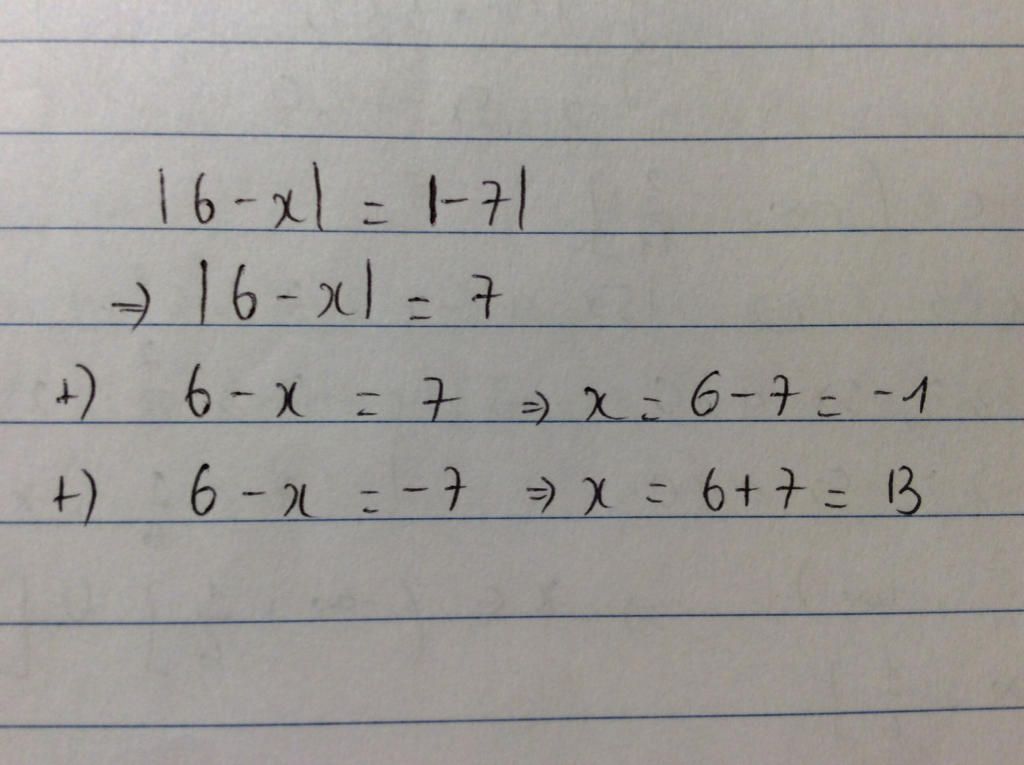 |6-x| = |-7|
⇒ |6-x| = 7
+) 6-x = 7 ⇒ x = 6-7 = -1
+) 6-x = -7 ⇒ x = 6+7 = 13